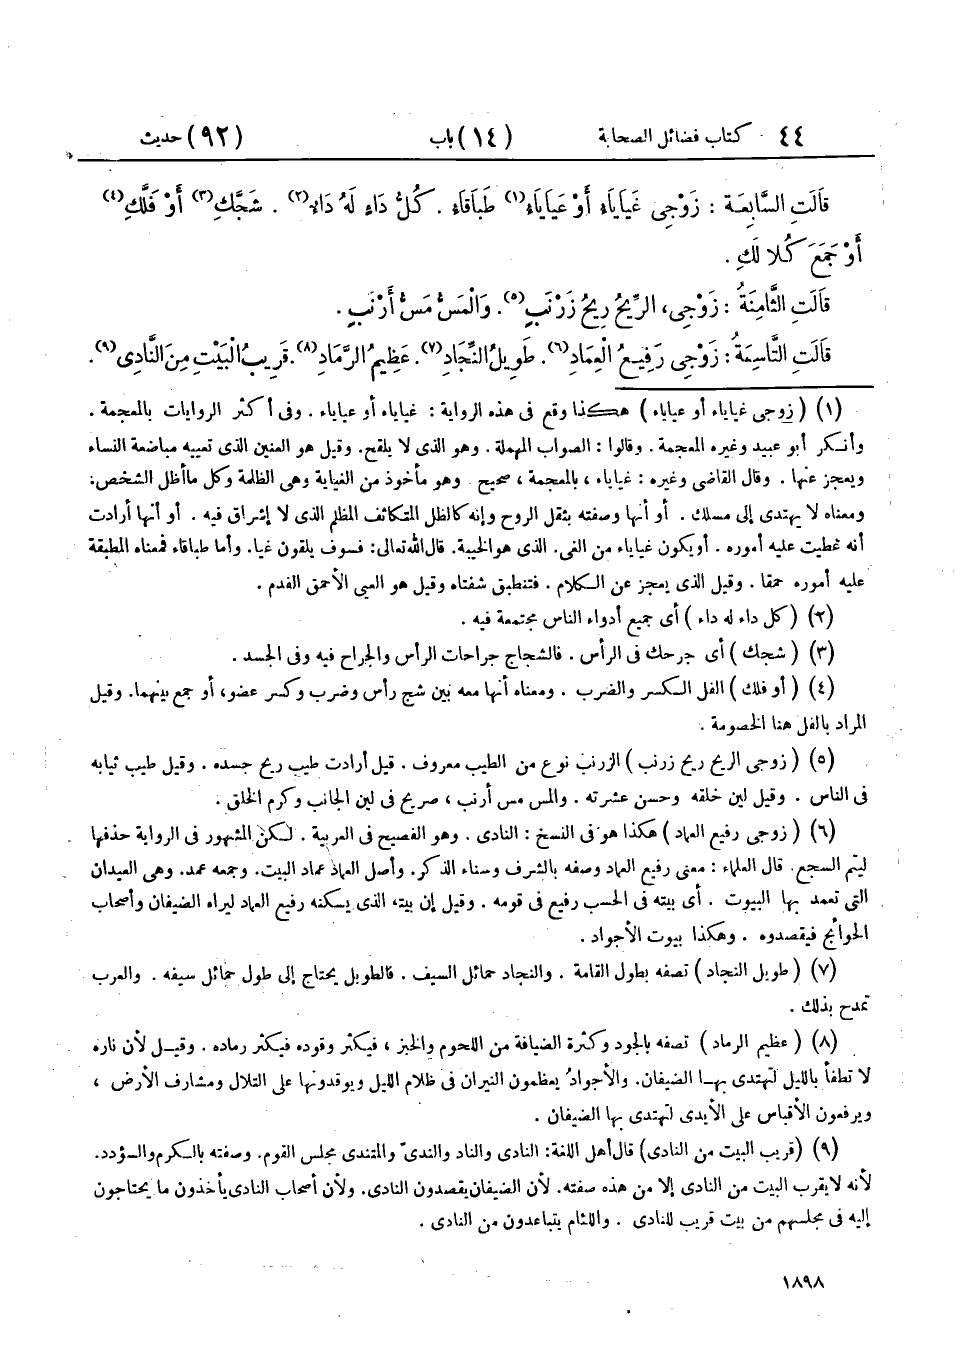 ٤٤ - كتاب فضائل الصحابة (١٤) باب (٩٢) حديث
قَالَتِ السَّابِعَةُ : زَوْجِى غَيَايَاءُ أَوْ عَيَايَاءُ(١) طَبَاقَاءُ . كُلُّ دَاءٍ لَهُ دَاءٌ(٢) . شَجَّكِ(٣) أَوْ فَلَّكِ(٤)
أَوْ جَمَعَ كُلًّا لَكِ .
قَالَتِ الثَّامِنَةُ : زَوْجِى، الرِّيحُ رِيحُ زَرْنَبٍ(٥). وَالْمَسُّ مَسُّ أَرْنَبٍ .
قَالَتِ التَّاسِعَةُ : زَوْجِى رَفِيعُ الْعِمَادِ(٦). طَوِيلُ النِّجَادِ(٧). عَظِيمُ الرَّمَادِ(٨). قَرِيبُ الْبَيْتِ مِنَ النَّادِى(٩).
(١) (زوجى غياياء أو عياياء) هكذا وقع فى هذه الرواية : غياياء أو عياياء . وفى أكثر الروايات بالمعجمة .
وأنكر أبو عبيد وغيره المعجمة . وقالوا : الصواب المهملة . وهو الذى لا يلقح. وقيل هو العنين الذى تعييه مباضعة النساء
ويعجز عنها . وقال القاضى وغيره : غياياء ، بالمعجمة ، صحيح وهو مأخوذ من الغياية وهى الظلمة وكل ماأظل الشخص:
ومعناه لا يهتدى إلى مسلك . أو أنها وصفته بثقل الروح وإنه كالظل المتكاثف المظلم الذى لا إشراق فيه . أو أنها أرادت
أنه غطيت عليه أموره . أويكون غياياء من الغى. الذى هو الخيبة. قال الله تعالى: فسوف يلقون غيا. وأما طباقاء فمعناه المطبقة
عليه أموره حمقا . وقيل الذى يعجز عن الكلام . فتنطبق شفتاه وقيل هو العيى الأحمق الفدم .
(٢) (كل داء له داء) أى جميع أدواء الناس مجتمعة فيه .
(٣) (شجك) أى جرحك فى الرأس . فالشجاج جراحات الرأس والجراح فيه وفى الجسد .
(٤) (أو فلك) الفل الكسر والضرب . ومعناه أنها معه بين شج رأس وضرب وكسر عضو، أو جمع بينهما. وقيل
المراد بالفل هنا الخصومة .
(٥) (زوجى الريح ريح زرنب) الزرنب نوع من الطيب معروف . قيل أرادت طيب ريح جسده . وقيل طيب ثيابه
فى الناس . وقيل لين خلقه وحسن عشرته . والمس مس أرنب ، صريح فى لين الجانب وكرم الخلق .
(٦) (زوجى رفيع العماد) هكذا هو فى النسخ : النادى . وهو الفصيح فى العربية . لكن المشهور فى الرواية حذفها
ليتم السجع. قال العلماء : معنى رفيع العماد وصفه بالشرف وسناء الذكر. وأصل العماد عماد البيت. وجمعه عمد. وهى العيدان
التى تعمد بها البيوت . أى بيته فى الحسب رفيع فى قومه . وقيل إن بيته الذى يسكنه رفيع العماد ليراه الضيفان وأصحاب
الحوائج فيقصدوه . وهكذا بيوت الأجواد .
(٧) (طويل النجاد) تصفه بطول القامة . والنجاد حمائل السيف . فالطويل يحتاج إلى طول حمائل سيفه . والعرب
تمدح بذلك .
(٨) (عظيم الرماد) تصفه بالجود وكثرة الضيافة من اللحوم والخبز ، فيكثر وقوده فيكثر رماده . وقيل لأن ناره
لا تطفأ بالليل لتهتدى بها الضيفان. والأجواد يعظمون النيران فى ظلام الليل ويوقدونها على التلال ومشارف الأرض ،
ويرفعون الأقباس على الأيدى لتهتدى بها الضيفان .
(٩) (قريب البيت من النادى) قال أهل اللغة: النادى والناد والندىّ والمنتدى مجلس القوم. وصفته بالكرم والسؤدد.
لأنه لا يقرب البيت من النادى إلا من هذه صفته. لأن الضيفان يقصدون النادى. ولأن أصحاب النادى يأخذون ما يحتاجون
إليه فى مجلسهم من بيت قريب للنادى . واللئام يتباعدون من النادى .
١٨٩٨